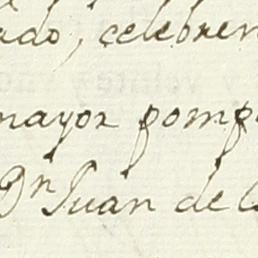 ado, celebren
mayor pomp
Dn Juan de